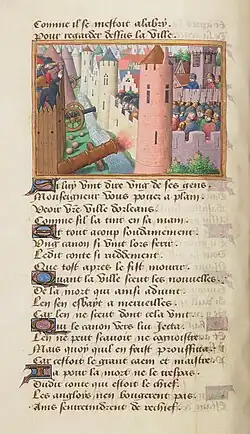 Comme il se mettoit a labry
Pour regarder dessus la ville
Il luy vint dire ung de ses gens
Monseigneur vous povez a plain
Veoir vre ville dorleans
Comme sil la tint en sa main
Et tout acoup soudainement
Ung canon si vint lors ferir
Ledit conte si roddement
Que tost apres le fist mourir
Quant la ville sceut les nouvelles
De la mort qui ainsi advint
Len sen esbayt a merveilles
Car len ne scent dont cela vint
Qui le canon vers luy Jecta
Len ne peut scavoir ne cognoistre
Mais quoy quil en feust prouffita
Car cestoit le grant caem et maistre
Ja pour la mort ne le trespas
Dudit conte qui estoit le chief
Les angloys nen bougerent pas
Ains sentreindrent de rechief